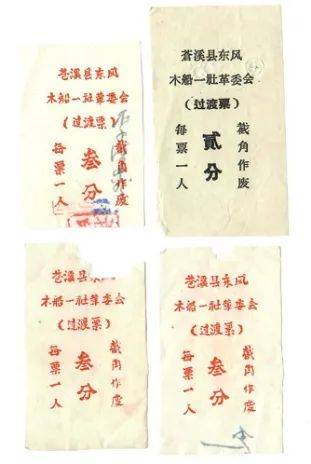 苍溪县东风
木船一社革委会
(过渡票)
每票一人
叁分
截角作废
蒼溪县东风
木船一社革委会
(过渡票)
每票一人
贰分
截角作废
苍溪县东风
木船一社革委会
(过渡票)
每票一人
叁分
截角作废
苍溪县东风
木船一社革委会
(过渡票)
每票一人
叁分
截角作废